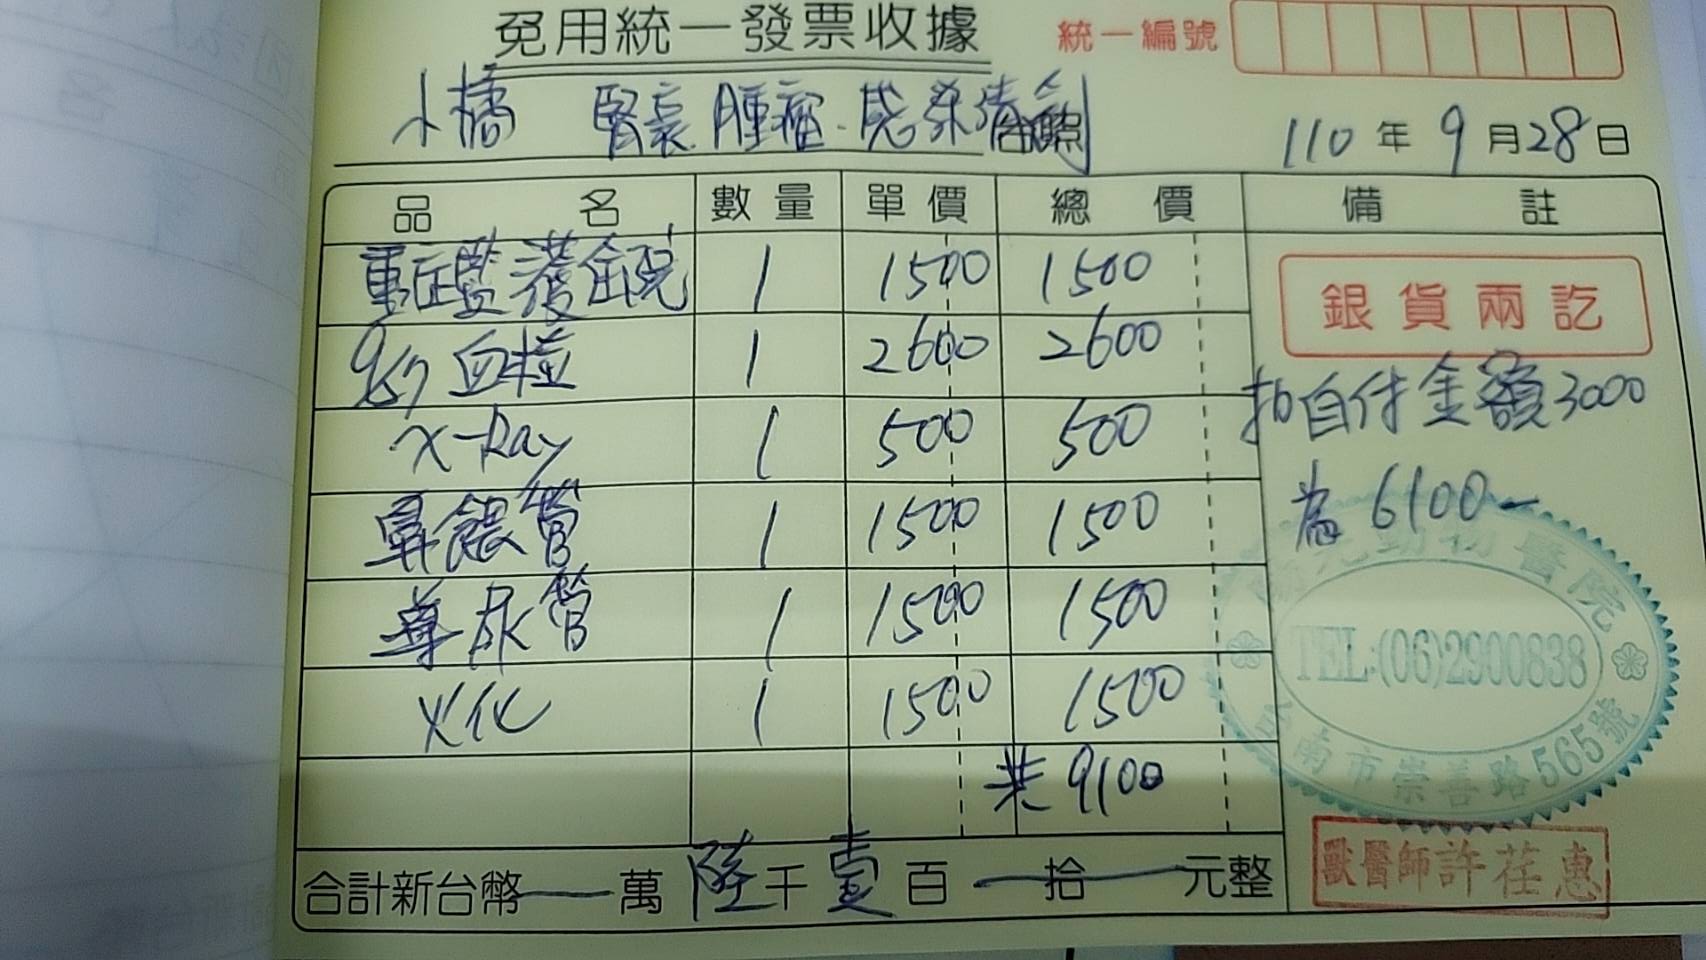 免用統一發票收據
統一編號
小橘 腎衰 腫瘤.感染
110年9月28日
品名 數量 單價 總價 備註
重症監護住院 1 1500 1500
銀貨兩訖
血檢 1 2600 2600
扣自付金額3000
X-Ray 1 500 500
為6100
鼻餵管 1 1500 1500
動物醫院
導尿管 1 1500 1500
TEL:(06)2900838
火化 1 1500 1500
台南市崇善路565號
共9100
獸醫師許荏惠
合計新台幣 萬陸千壹百 拾 元整